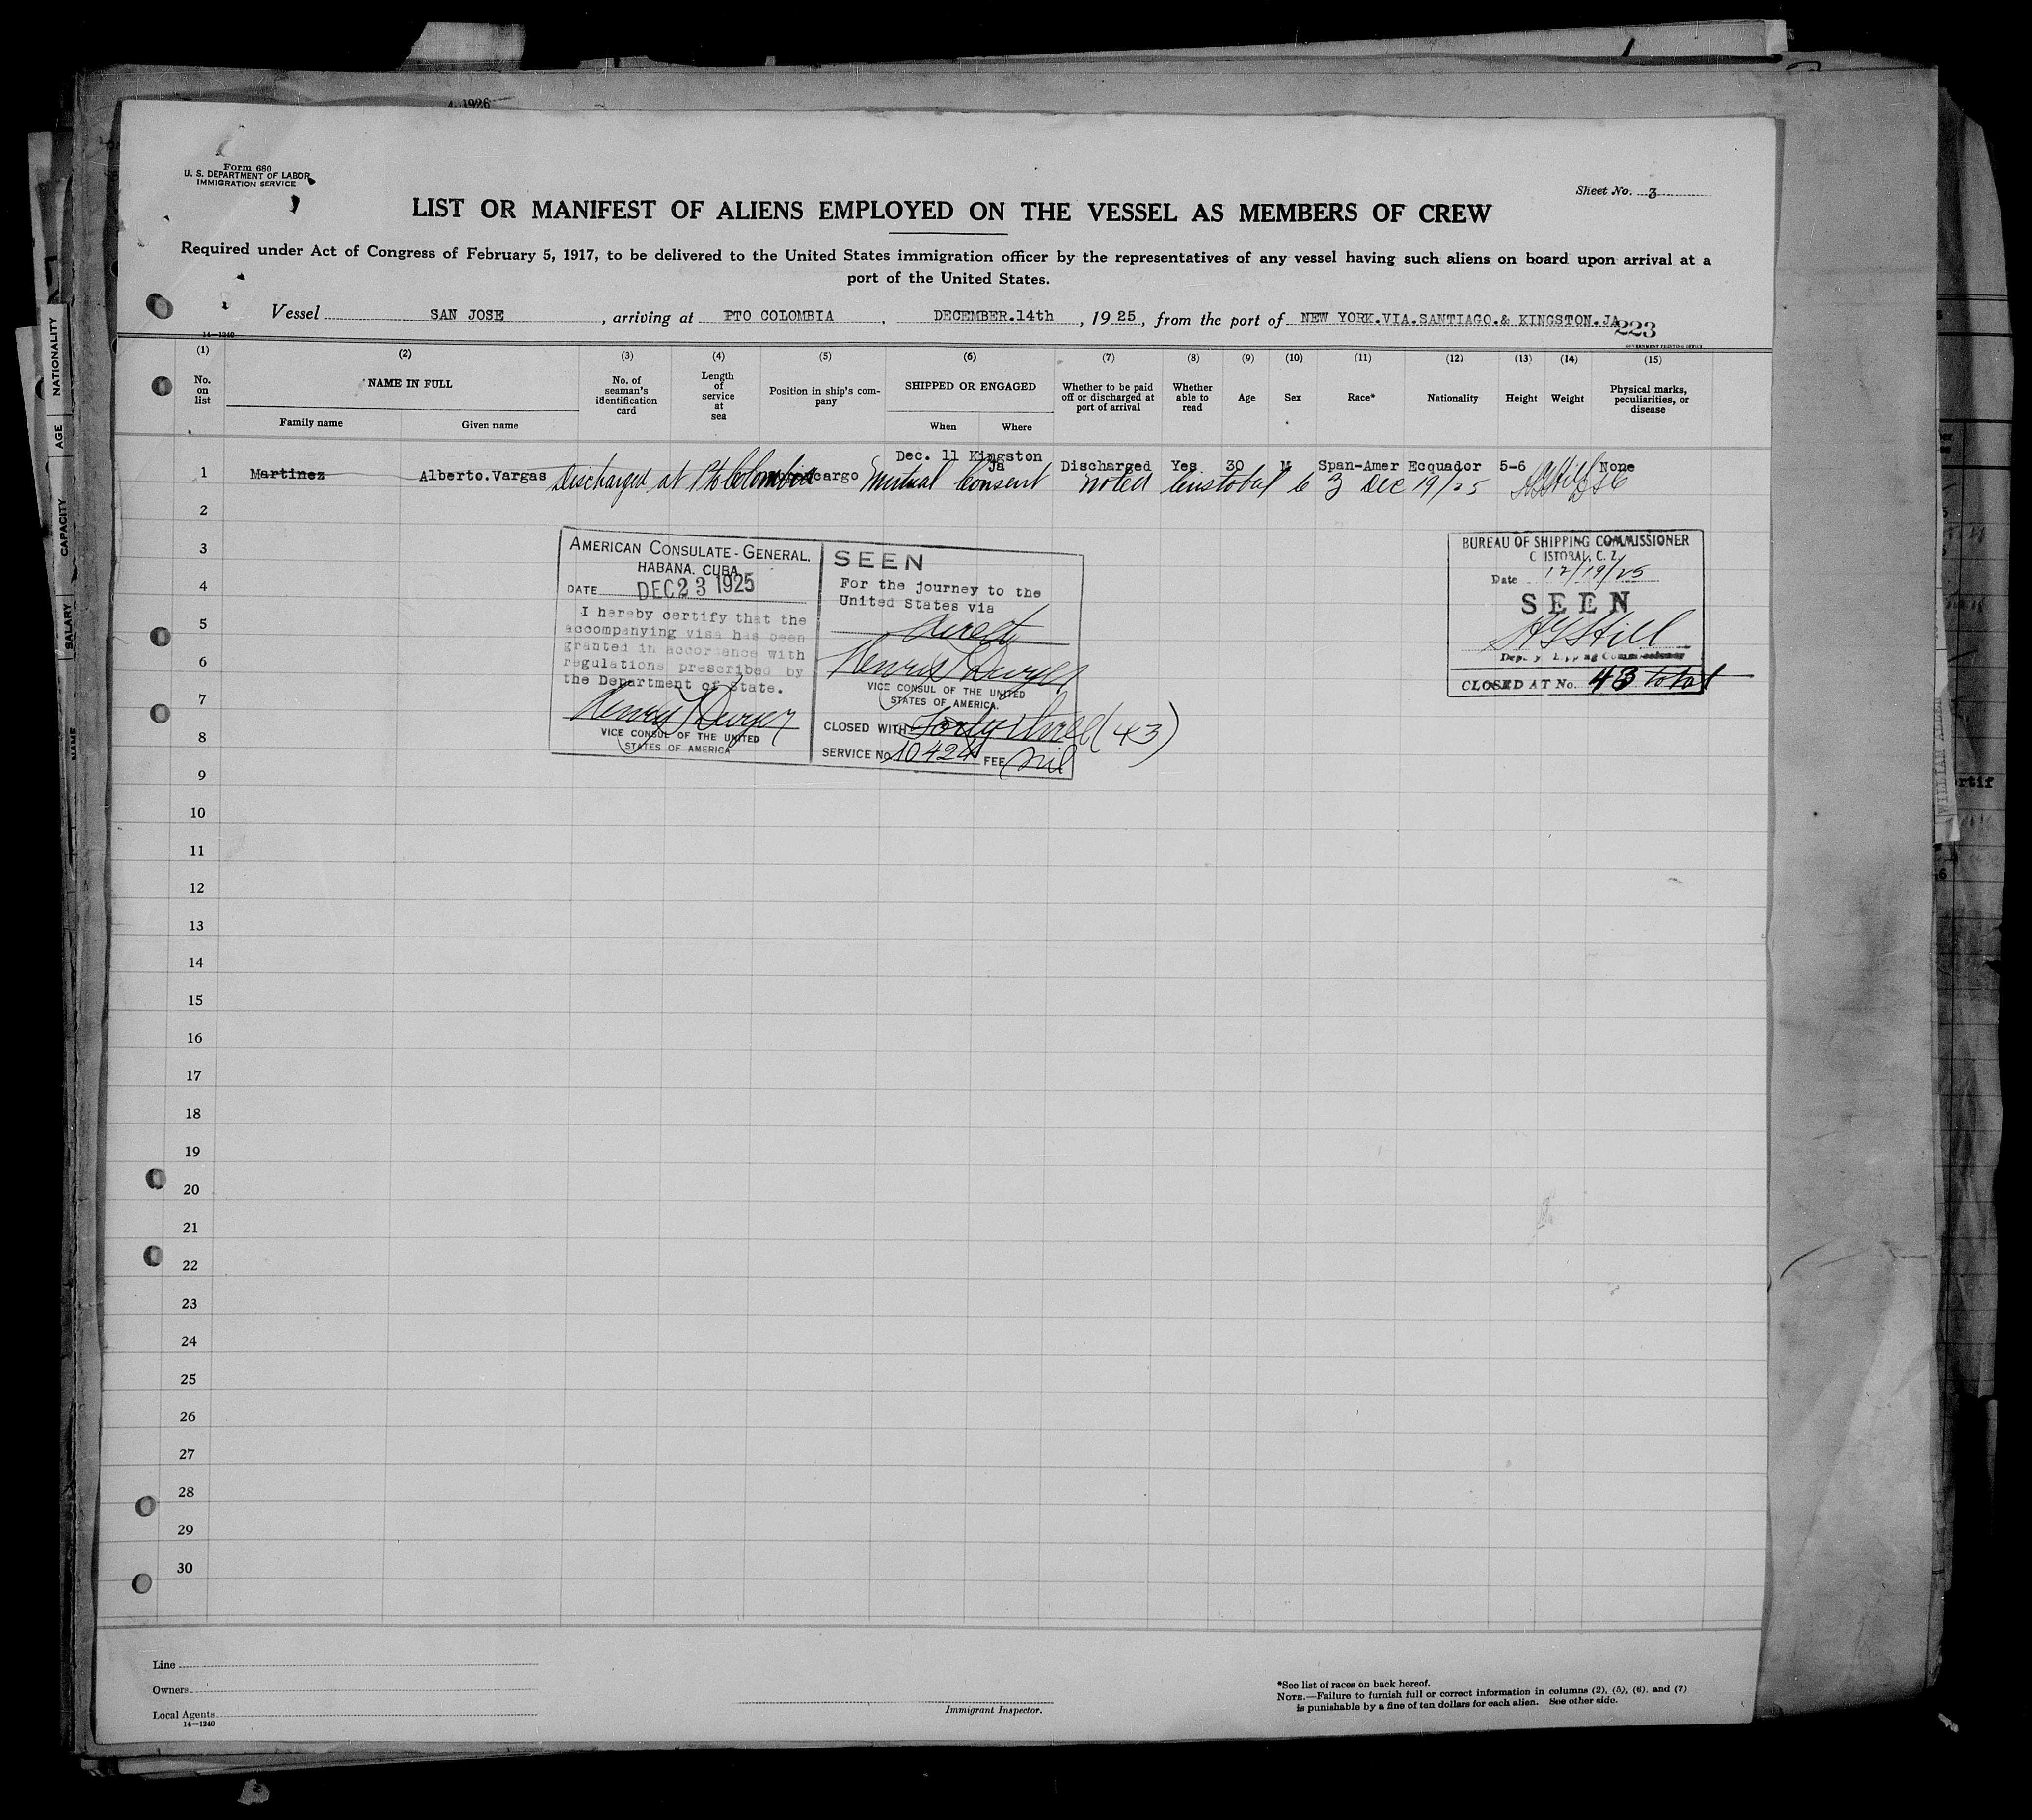 4, 1926
Form 680
U. S. DEPARTMENT OF LABOR
IMMIGRATION SERVICE
Sheet No. 3
LIST OR MANIFEST OF ALIENS EMPLOYED ON THE VESSEL AS MEMBERS OF CREW
Required under Act of Congress of February 5, 1917, to be delivered to the United States immigration officer by the representatives of any vessel having such aliens on board upon arrival at a
port of the United States.
Vessel SAN JOSE, arriving at PTO COLOMBIA, DECEMBER.14th, 1925, from the port of NEW YORK.VIA.SANTIAGO.& KINGSTON.JA
223
14—1240
GOVERNMENT PRINTING OFFICE
(1) (2) (3) (4) (5) (6) (7) (8) (9) (10) (11) (12) (13) (14) (15)
No. on list
NAME IN FULL
Family name
Given name
No. of seaman's identification card
Length of service at sea
Position in ship's company
SHIPPED OR ENGAGED
When
Where
Whether to be paid off or discharged at port of arrival
Whether able to read
Age
Sex
Race*
Nationality
Height
Weight
Physical marks, peculiarities, or disease
Dec. 11 Kingston
Ja
1 Martinez Alberto.Vargas cargo Discharged Yes 30 M Span-Amer Ecquador 5-6 None
Discharged at Pto Colombia Mutual Consent noted Cristobal C Z Dec 19/25 HG Hill DSC
2
3
4
5
6
7
8
9
10
11
12
13
14
15
16
17
18
19
20
21
22
23
24
25
26
27
28
29
30
AMERICAN CONSULATE-GENERAL,
HABANA, CUBA.
DATE DEC 23 1925
I hereby certify that the
accompanying visa has been
granted in accordance with
regulations prescribed by
the Department of State.
Henry T Dwyer
VICE CONSUL OF THE UNITED
STATES OF AMERICA
SEEN
For the journey to the
United States via
direct
Henry T Dwyer
VICE CONSUL OF THE UNITED
STATES OF AMERICA.
CLOSED WITH Forty three (43)
SERVICE No. 10424 FEE Nil
BUREAU OF SHIPPING COMMISSIONER
CRISTOBAL, C. Z.
Date 12/19/25
SEEN
HG Hill
Deputy Shipping Commissioner
CLOSED AT No. 43 total
Line
Owners
Local Agents
14—1240
Immigrant Inspector.
*See list of races on back hereof.
NOTE.—Failure to furnish full or correct information in columns (2), (5), (6), and (7)
is punishable by a fine of ten dollars for each alien. See other side.
NATIONALITY
AGE
CAPACITY
SALARY
NAME